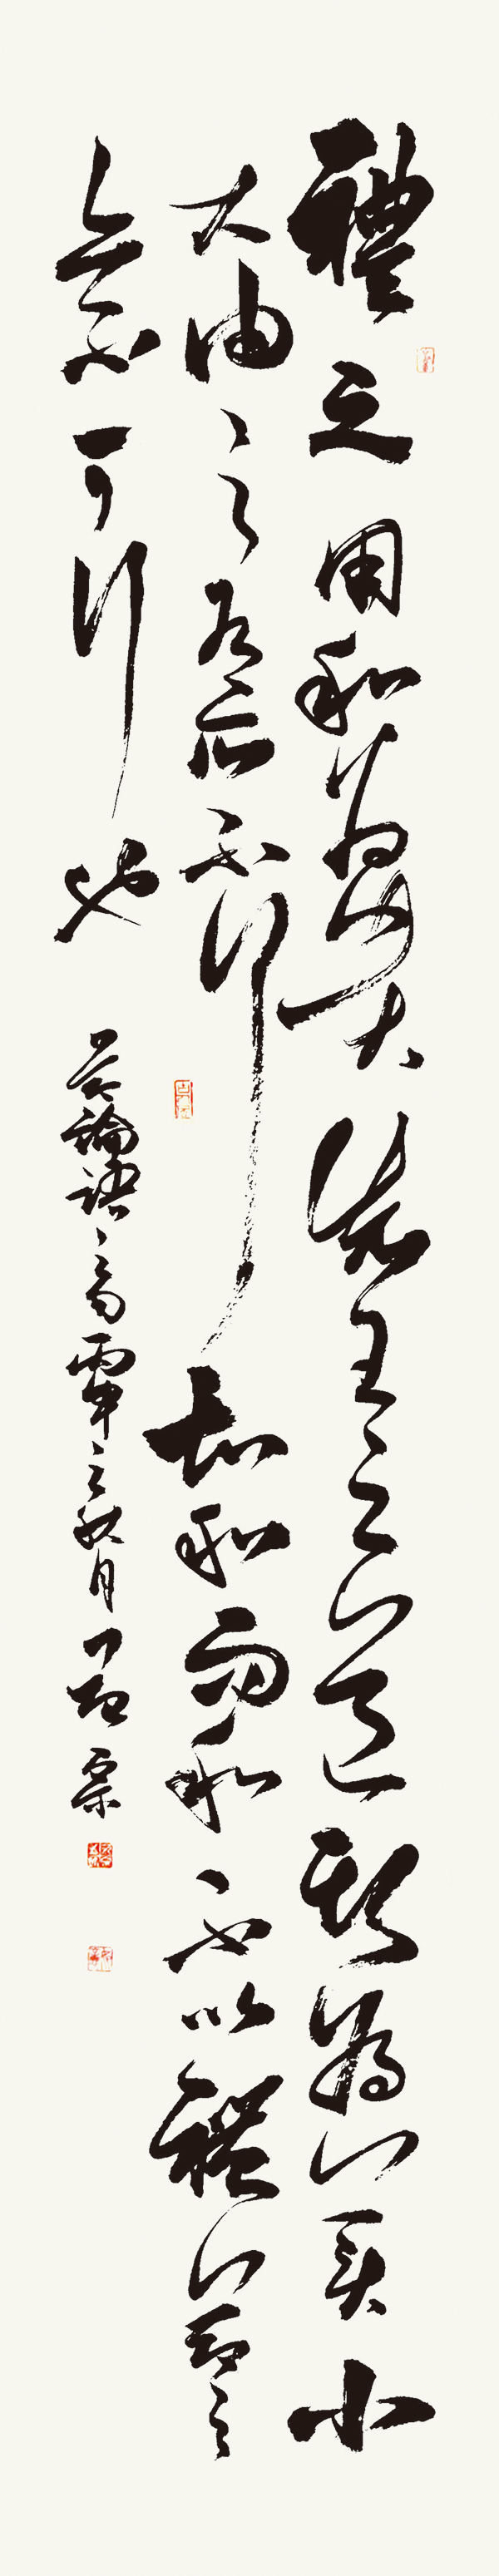 禮之用和為貴先王之道斯為美小
大由之有所不行知和而和不以禮節之
亦不可行也 論語 之秋月